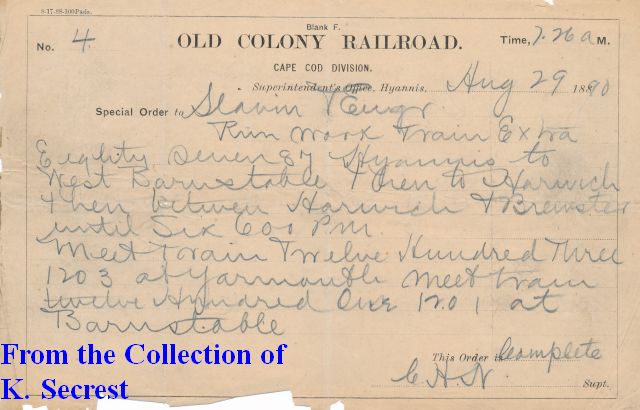 8-17-88-100 Pads.
Blank F.
No. 4.
OLD COLONY RAILROAD.
Time, 7.26 a M.
CAPE COD DIVISION.
Superintendent's Office, Hyannis, Aug 29 1890
Special Order to Slavin & Engr
Run Work Train Extra
Eeghty Seven 87 Hyannis to
West Barnstable then to Harwich
then between Harwich & Brewster
until Six 600 P.M.
Meet train Twelve Hundred Three
1203 at Yarmouth meet train
twelve Hundred One 1201 at
Barnstable
This Order is Complete
C.H.N. Supt.
From the Collection of
K. Secrest